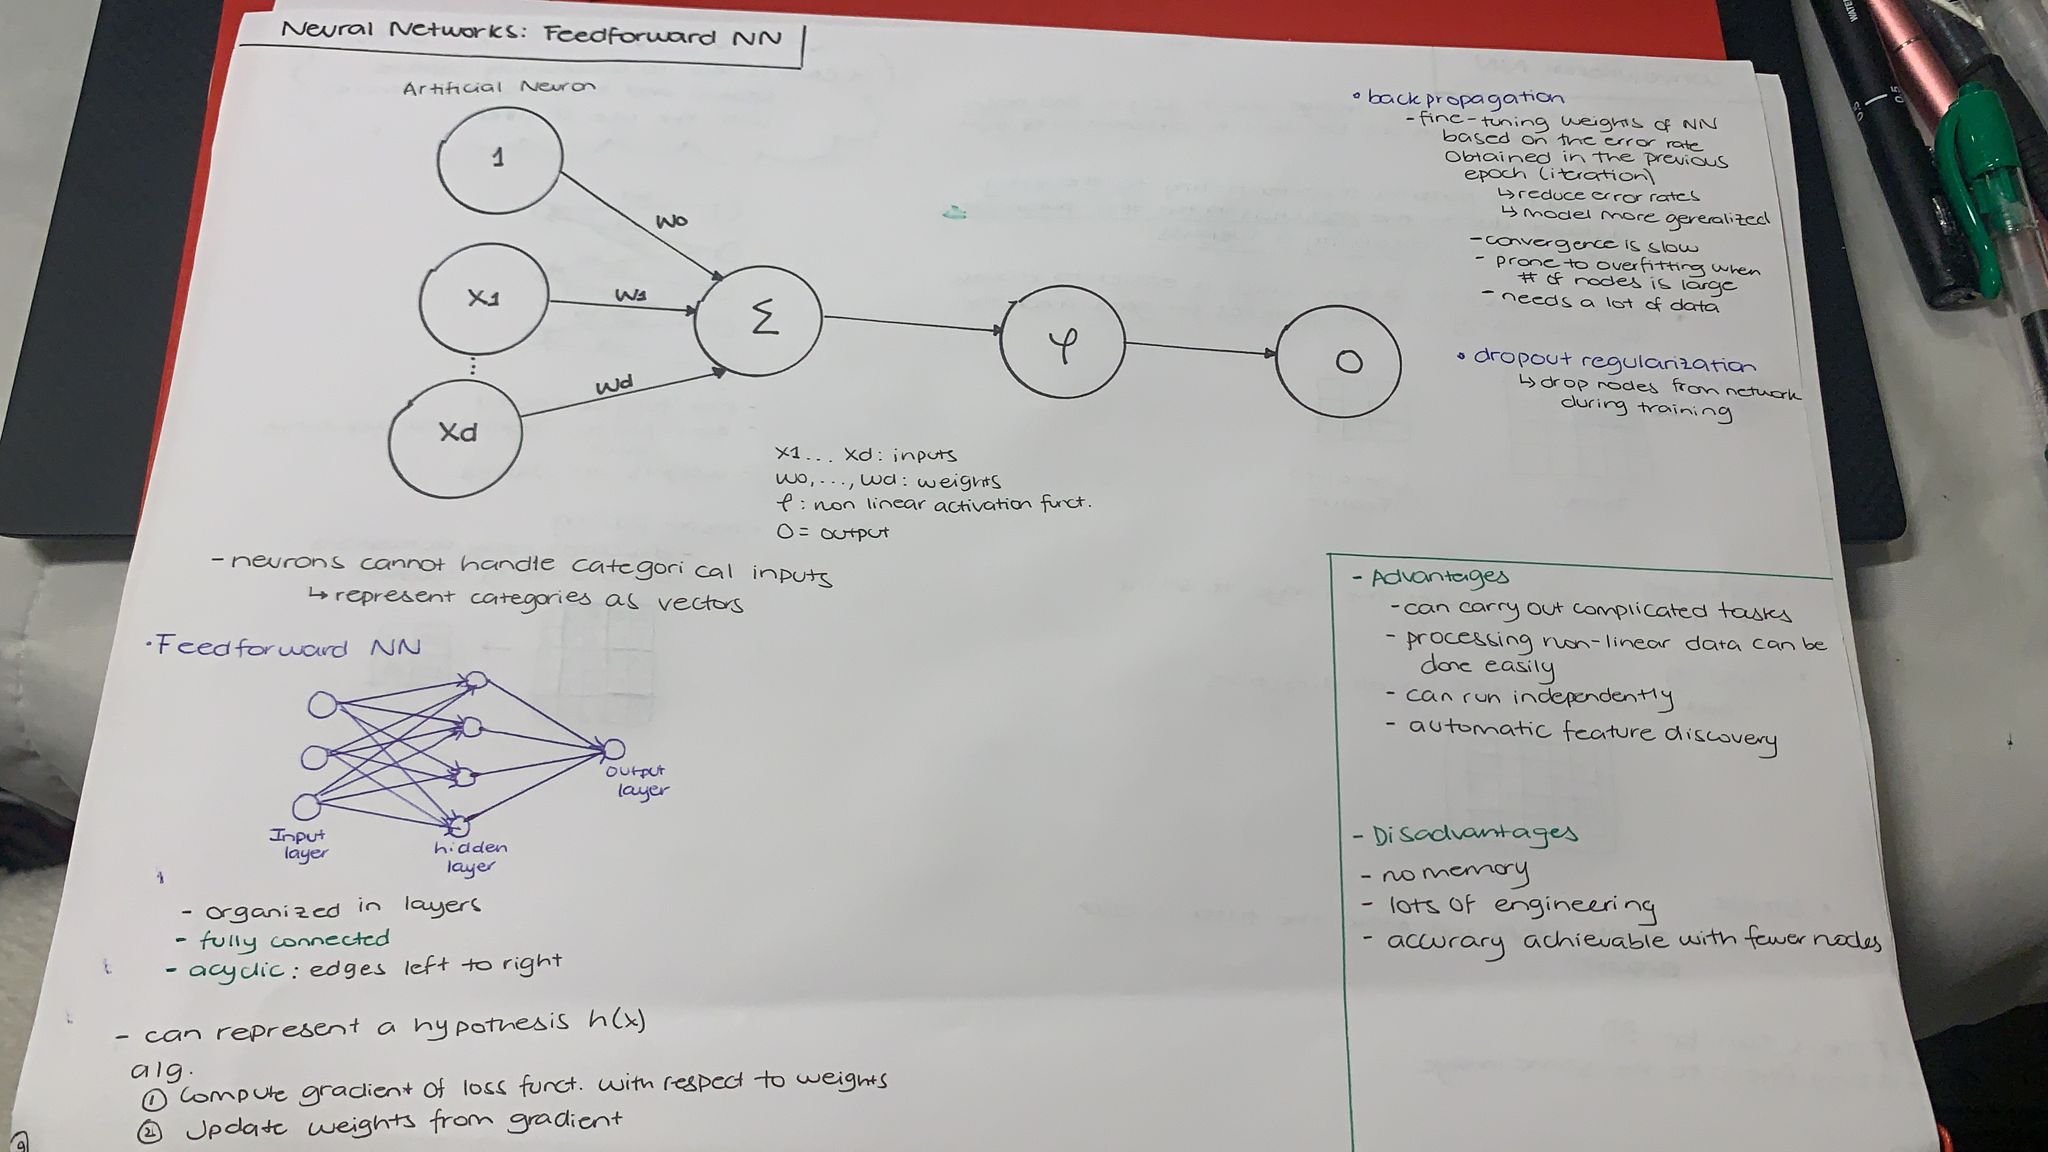 Neural Networks: Feedforward NN
Artificial Neuron
1
Wo
X1
W1
Σ
φ
O
Xd
Wd
X1... Xd: inputs
Wo,..., Wd: weights
φ: non linear activation funct.
O = output
- neurons cannot handle categorical inputs
↳ represent categories as vectors
• Feedforward NN
Input
layer
hidden
layer
output
layer
- organized in layers
- fully connected
- acyclic: edges left to right
- can represent a hypothesis h(x)
alg.
① Compute gradient of loss funct. with respect to weights
② Update weights from gradient
9
• backpropagation
- fine-tuning weights of NN
based on the error rate
obtained in the previous
epoch (iteration)
↳ reduce error rates
↳ model more gereralized
- convergence is slow
- prone to overfitting when
# of nodes is large
- needs a lot of data
• dropout regularization
↳ drop nodes from network
during training
- Advantages
- can carry out complicated tasks
- processing non-linear data can be
done easily
- can run independently
- automatic feature discovery
- Disadvantages
- no memory
- lots of engineering
- accurary achievable with fewer nodes